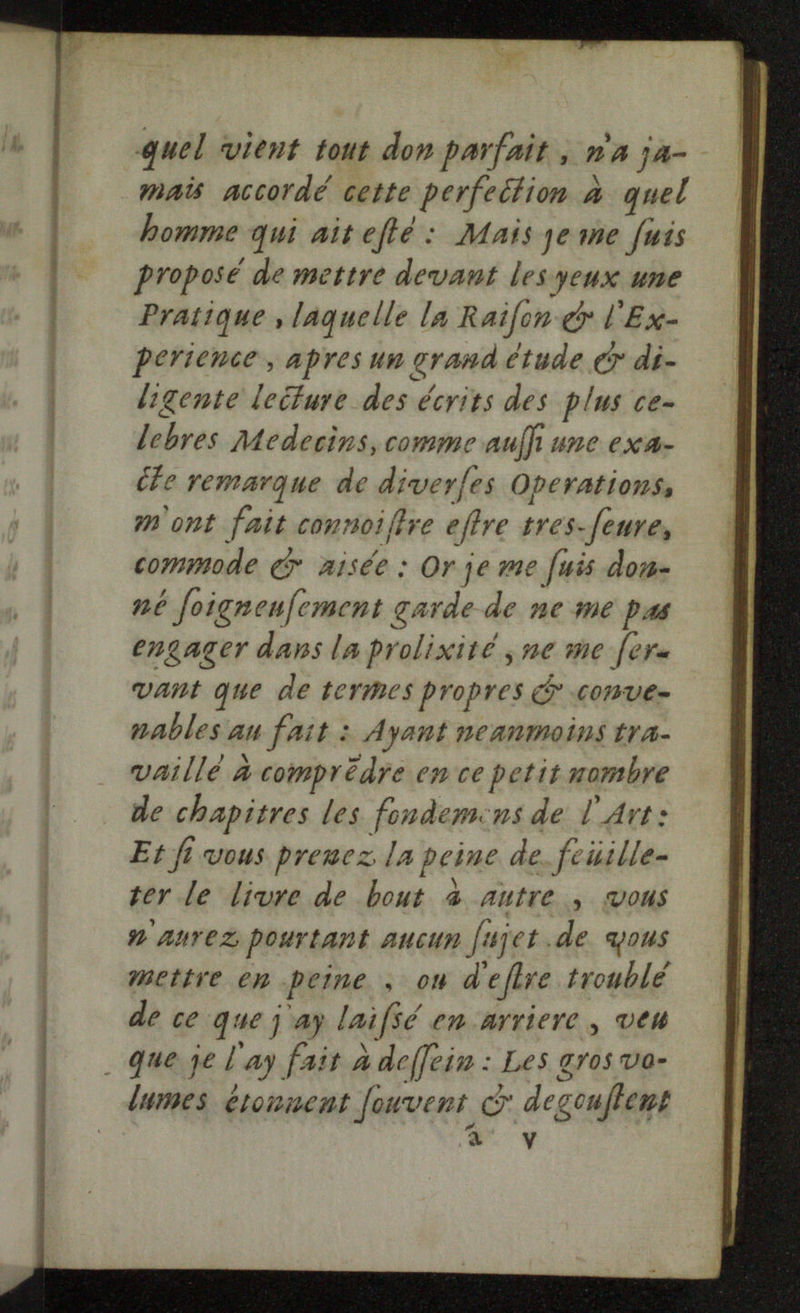 quel vient tout don parfait, n'a ja-
mais accordé cette perfection à quel
homme qui ait eſté : Mais je me ſuis
proposé de mettre devant les yeux une
Pratique, laquelle la Raiſon & l'Ex-
perience, apres un grand étude & di-
ligente lecture des écrits des plus ce-
lebres Medecins, comme auſſi une exa-
cte remarque de diverſes Operations,
m'ont fait connoiſtre eſtre tres-ſeure,
commode & aisée : Or je me ſuis don-
né ſoigneuſement garde de ne me pas
engager dans la prolixité, ne me ſer-
vant que de termes propres & conve-
nables au fait : Ayant neanmoins tra-
vaillé à comprẽdre en ce petit nombre
de chapitres les fondemens de l'Art :
Et ſi vous prenez la peine de feüille-
ter le livre de bout à autre, vous
n'aurez pourtant aucun ſujet de vous
mettre en peine, ou d'eſtre troublé
de ce que j'ay laiſsé en arriere, veu
que je l'ay fait à deſſein : Les gros vo-
lumes étonnent ſouvent & degouſtent
ã v